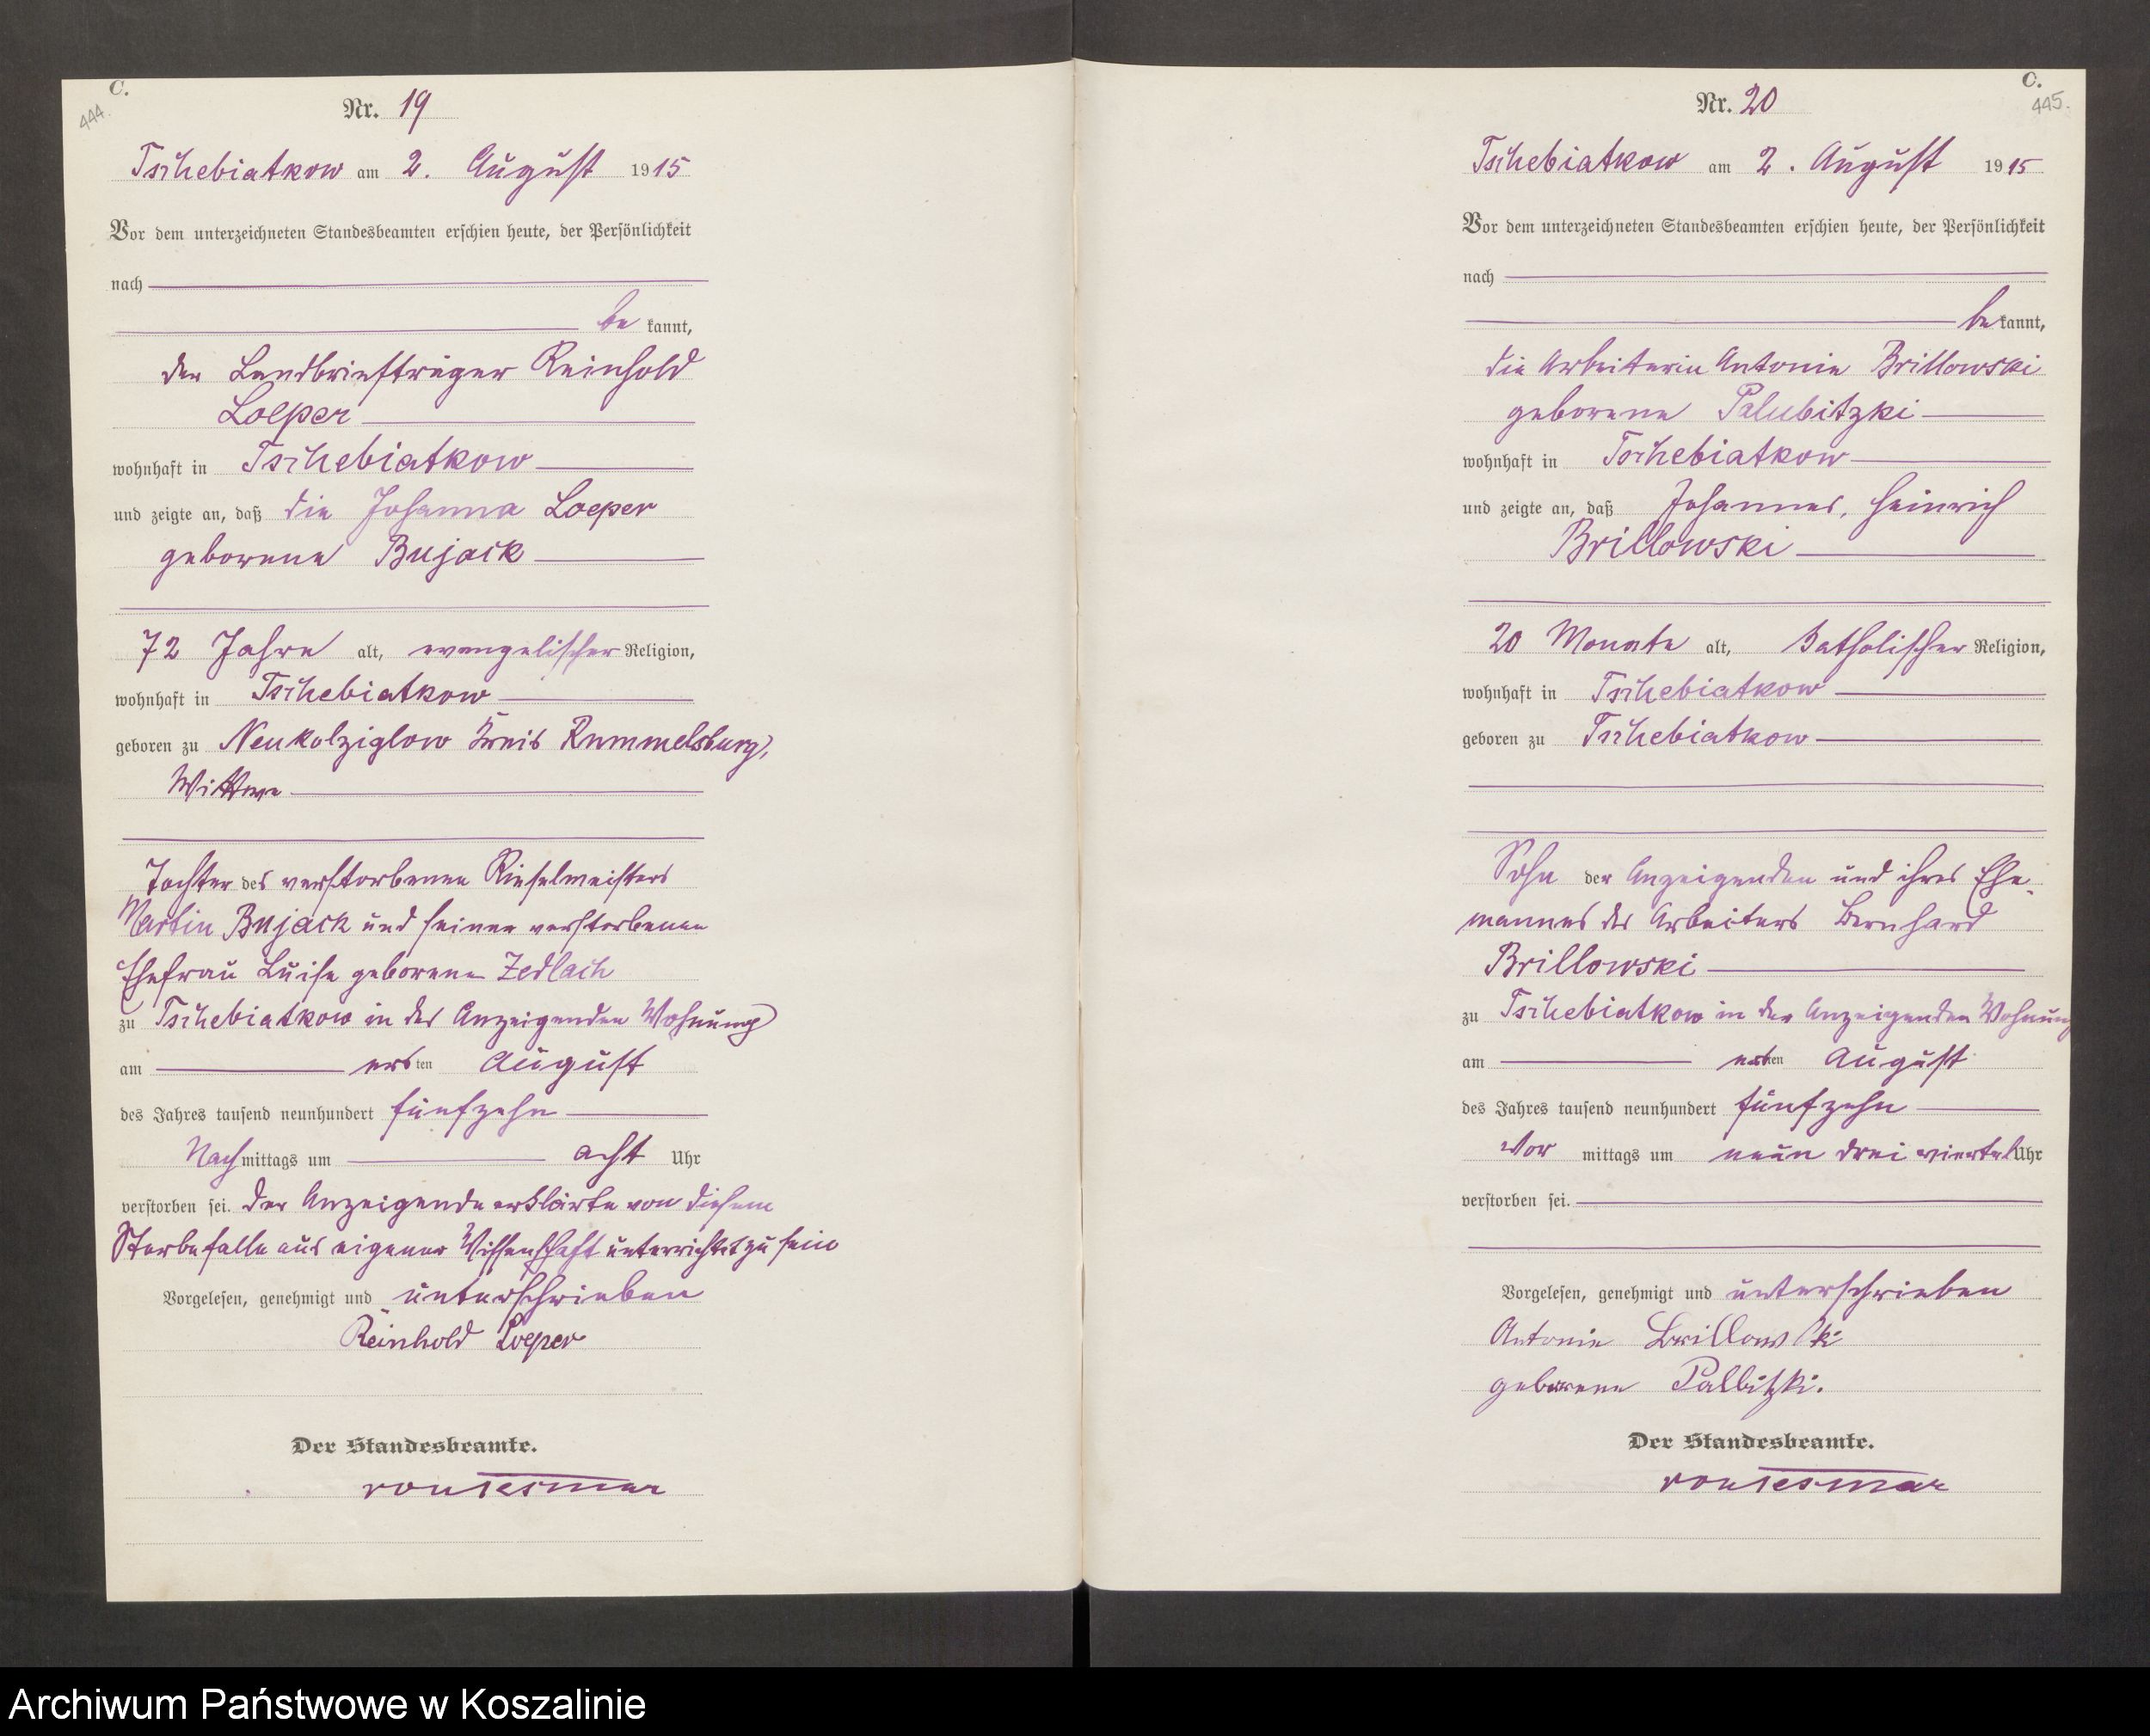 C.
444.
Nr. 19
Tschebiatkow am 2. August 1915
Vor dem unterzeichneten Standesbeamten erschien heute, der Persönlichkeit
nach
be kannt,
der Landbriefträger Reinhold
Loeper
wohnhaft in Tschebiatkow
und zeigte an, daß die Johanna Loeper
geborene Bujack
72 Jahre alt, evangelischer Religion,
wohnhaft in Tschebiatkow
geboren zu Neukolziglow Kreis Rummelsburg,
Wittwe
Tochter des verstorbenen Rieselmeisters
Martin Bujack und seiner verstorbenen
Ehefrau Luise geborene Zedlach
zu Tschebiatkow in des Anzeigenden Wohnung
am ersten August
des Jahres tausend neunhundert fünfzehn
Nachmittags um acht Uhr
verstorben sei. Der Anzeigende erklärte von diesem
Sterbefalle aus eigener Wissenschaft unterrichtet zu sein
Vorgelesen, genehmigt und unterschrieben
Reinhold Loeper
Der Standesbeamte.
C.
445.
Nr. 20
Tschebiatkow am 2. August 1915
Vor dem unterzeichneten Standesbeamten erschien heute, der Persönlichkeit
nach
be kannt,
die Arbeiterin Antonie Brillowski
geborene Palubitzki
wohnhaft in Tschebiatkow
und zeigte an, daß Johannes, Heinrich
Brillowski
20 Monate alt, katholischer Religion,
wohnhaft in Tschebiatkow
geboren zu Tschebiatkow
Sohn der Anzeigenden und ihres Ehe-
mannes des Arbeiters Bernhard
Brillowski
zu Tschebiatkow in der Anzeigenden Wohnung
am ersten August
des Jahres tausend neunhundert fünfzehn
Vor mittags um neun drei viertel Uhr
verstorben sei.
Vorgelesen, genehmigt und unterschrieben
Antonie Brillowski
geborene Palbitzki.
Der Standesbeamte.
Archiwum Państwowe w Koszalinie